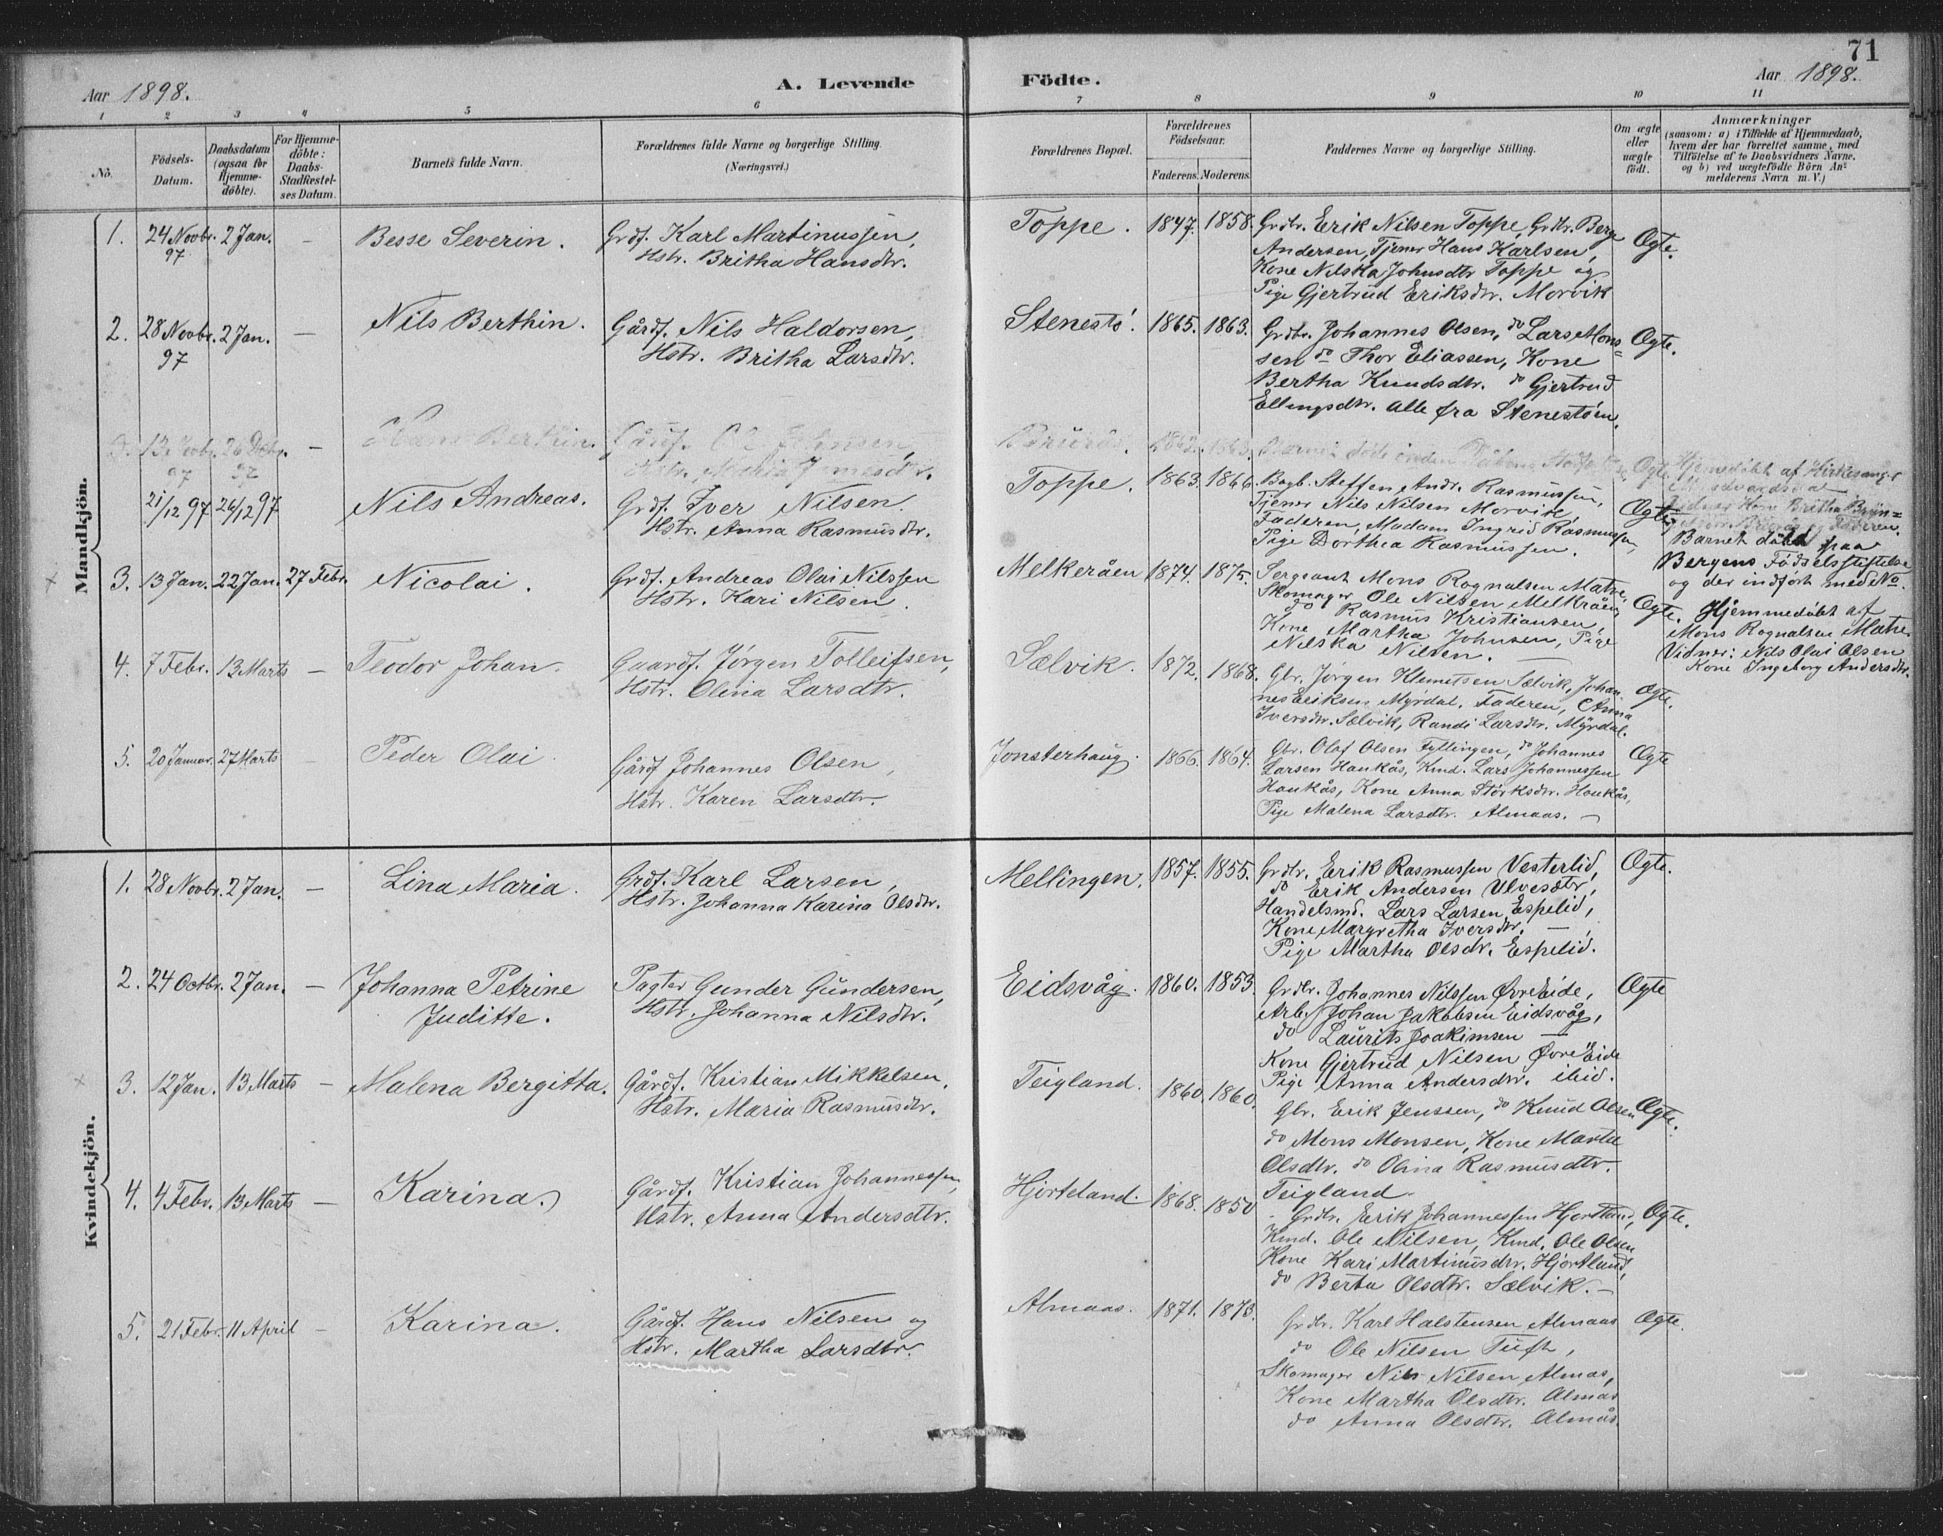 71
Aar 1898. A. Levende Födte. Aar 1898.
1 2 3 4 5 6 7 8 9 10 11
No. Födsels-Datum. Daabsdatum (ogsaa for Hjemme-döbte). For Hjemme-döbte: Daabs-Stadfæstel-ses Datum. Barnets fulde Navn. Forældrenes fulde Navne og borgerlige Stilling. (Næringsvei.) Forældrenes Bopæl. Forældrenes Födselsaar. Faderens. Moderens. Faddernes Navne og borgerlige Stilling. Om ægte eller uægte födt.
Anmærkninger
(saasom: a) i Tilfælde af Hjemmedaab,
hvem der har forrettet samme, med
Tilföielse af to Daabsvidners Navne,
og b) ved uægtefödte Börn An-
melderens Navn m. V.)
Mandkjön.
1. 24 Novbr. 97 2 Jan. — Besse Severin. Grdf. Karl Martinussen,
Hstr. Britha Hansdtr.
Toppe. 1847. 1858. Grdbr. Erik Nilsen Toppe, Grdbr. Berge
Andersen, Tjener Hans Karlsen,
Kone Nilska Johnsdtr Toppe og
Pige Gjertrud Eriksdtr. Morvik
Ægte.
2. 28 Novbr. 97 2 Jan. — Nils Berthin. Gårdf. Nils Haldorsen,
Hstr. Britha Larsdtr.
Stenestö. 1865. 1863. Grdbr. Johannes Olsen, do Lars Mons=
sen do Thor Eliassen, Kone
Bertha Knudsdtr. do Gjertrud
Ellingsdtr. Alle fra Stenestöen.
Ægte.
97 26 Decbr. 97 — Berthin. Gårdf.
Hstr.
1863. Barnet döde inden
Ægte Hjemmedöbt af Kirkesanger
Vidner Kone Britha Brün=
Faderen.
21/12 97 26/12 97 Nils Andreas. Grdf. Iver Nilsen.
Hstr. Anna Rasmusdtr.
Toppe. 1863. 1866. Bagb. Steffen Andr. Rasmussen,
Tjener Nils Nilsen Morvik,
Faderen, Madam Ingrid Rasmussen,
Pige Dorthea Rasmussen.
Ægte
Barnet döbt paa
Bergens Födselsstiftelse
og der indfört med No.
3. 13 Jan. 22 Jan. 27 Febr. Nicolai. Grdf. Andreas Olai Nilssen
Hstr. Kari Nilsen.
Melkeråen 1874. 1875. Sergeant Mons Rognalsen Matre,
Skomager Ole Nilsen Melkråen,
do Rasmus Kristiansen,
Kone Martha Johnsen, Pige
Nilska Nilsen. —
Ægte.
Hjemmedöbt af
Mons Rognalsen Matre.
Vidner: Nils Olai Olsen
Kone Ingeborg Andersdtr.
4. 7 Febr. 13 Marts — Teodor Johan. Gaardf. Jörgen Tolleifsen,
Hstr. Olina Larsdtr.
Sælvik. 1872. 1868. Gbr. Jörgen Klemetsen Sælvik, Johan-
nes Eriksen Myrdal, Faderen, Anna
Iversdtr. Sælvik, Randi Larsdtr. Myrdal.
Ægte.
5. 20 Januar. 27 Marts Peder Olai. Gårdf Johannes Olsen,
Hstr. Karen Larsdtr.
Jonsterhaug. 1866. 1864. Gbr. Olaf Olsen Fyllingen, do Johannes
Larsen Haukås, Kmd. Lars Johannessen
Haukås, Kone Anna Störksdtr. Haukås,
Pige Malena Larsdtr. Almaas. —
Ægte
Kvindekjön.
1. 28 Novbr. 2 Jan. — Lina Maria. Grdf. Karl Larsen,
Hstr. Johanna Karina Olsdtr.
Mellingen. 1857. 1855. Grdbr. Erik Rasmussen Vesterlid,
do Erik Andersen Ulvesætr,
Handelsmd. Lars Larsen Espelid,
Kone Margretha Iversdtr. —,
Pige Martha Olsdtr. Espelid.
Ægte.
2. 24 Octbr. 2 Jan. — Johanna Petrine
Juditte.
Pagter Gunder Gundersen,
Hstr. Johanna Nilsdtr.
Eidsvåg. 1860. 1853. Grdbr. Johannes Nilssen Övre Eide,
Arb. Johan Jakobsen Eidsvåg,
do Laurits Joakimsen —
Kone Gjertrud Nilsen Övre Eide
Pige Anna Andersdtr. ibid.
Ægte
3. 12 Jan. 13 Marts — Malena Bergitta. Gårdf. Kristian Mikkelsen,
Hstr. Maria Rasmusdtr.
Teigland. 1860. 1860. Gbr. Erik Jenssen, do Knud Olsen
do Mons Monsen, Kone Marta
Olsdtr. do Olina Rasmusdtr.
Teigland.
Ægte.
4. 4 Febr. 13 Marts — Karina. Gårdf. Kristian Johannessen,
Hstr. Anna Andersdtr.
Hjorteland. 1868. 1850 Grdbr. Erik Johannessen Hjortland,
Kmd. Ole Nilsen, Kmd. Ole Olsen
Kone Kari Martinusdtr. Hjortland,
do Berta Olsdtr. Sælvik. —
Ægte.
5. 21 Febr. 11 April — Karina. Gårdf. Hans Nilsen og
Hstr. Martha Larsdtr.
Almaas. 1871. 1873. Grdbr. Karl Halstensen Almaas
do Ole Nilsen Tuft,
Skomager Nils Nilsen Almas,
Kone Martha Olsdtr. Almas
do Anna Olsdtr. Almås
Ægte.